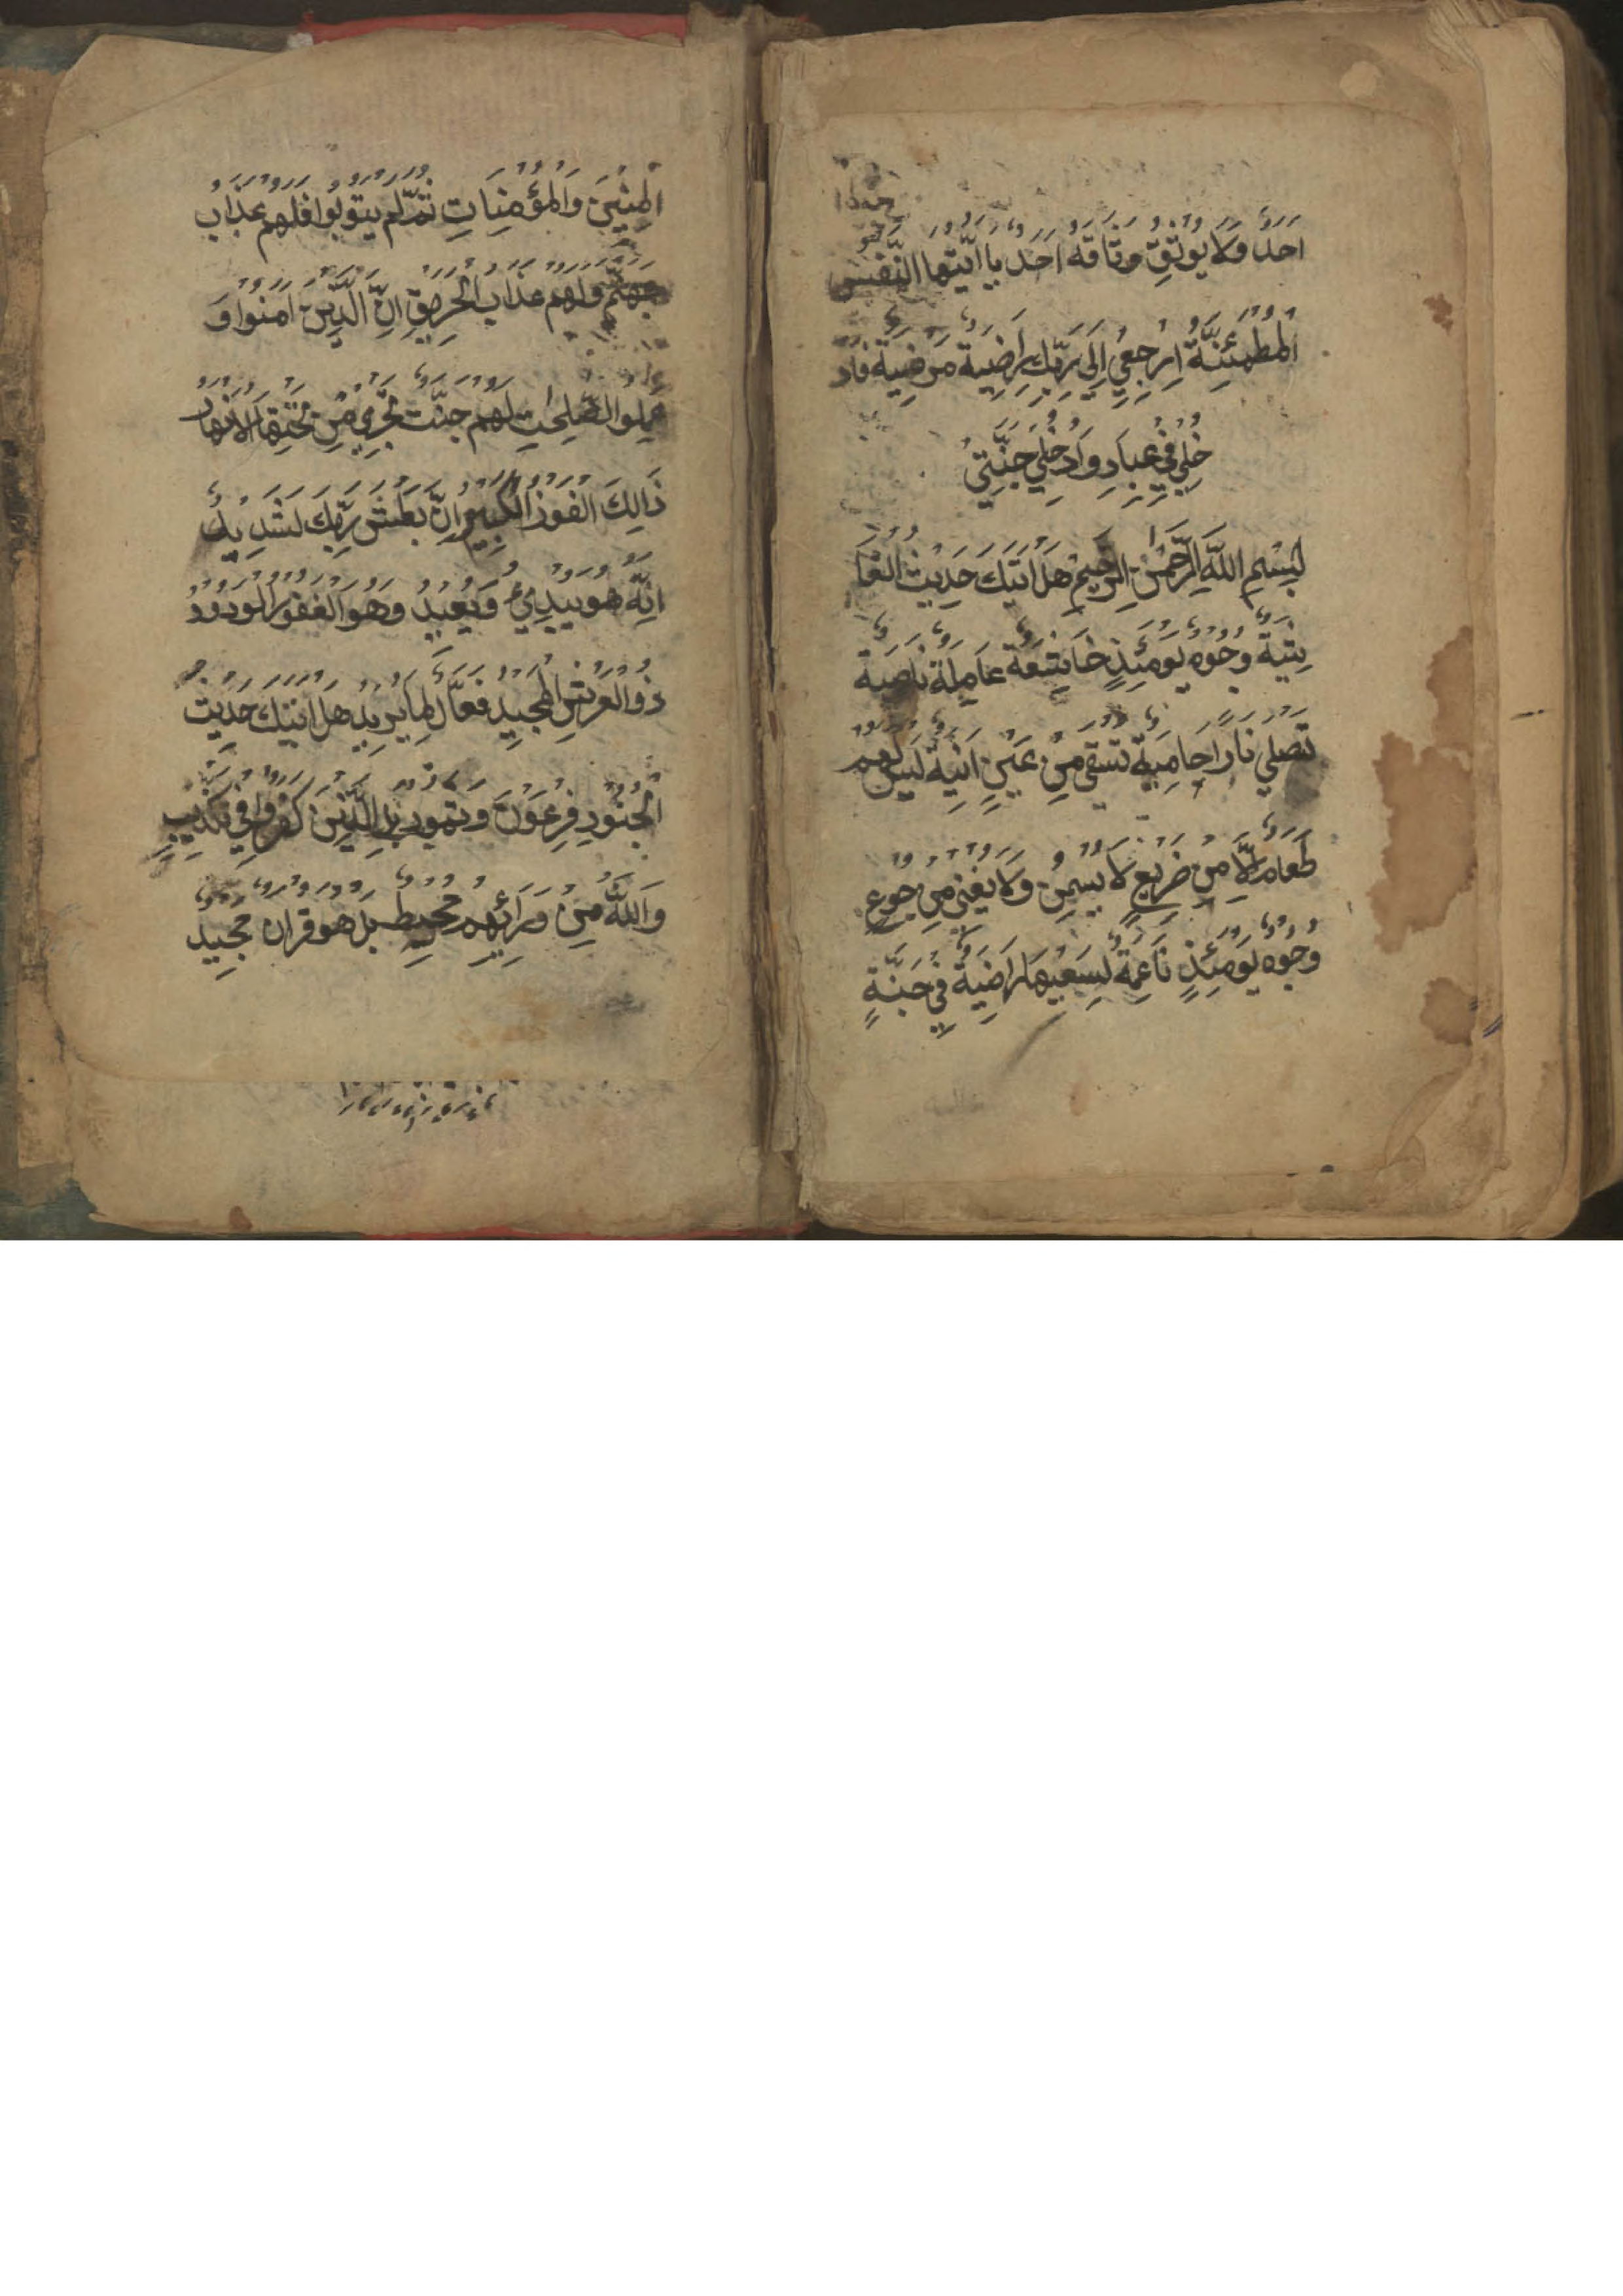 احد ولا يوثق وثاقه احد يا ايتها النفس
المطمئنة ارجعي الى ربك راضية مرضية فاد
خلي في عبادي وادخلي جنتي
بسم الله الرحمن الرحيم هل اتيك حديث الغا
شية وجوه يومئذ خاشعة عاملة ناصبة
تصلي نارا حامية تسقى من عين انية ليس لهم
طعام الا من ضريع لا يسمن ولا يغني من جوع
وجوه يومئذ ناعمة لسعيها راضية في جنة
المنين والمؤمنات ثم لم يتوبوا فلهم عذاب
جهنم ولهم عذاب الحريق ان الذين امنوا و
عملوا الصلحت لهم جنت تجري من تحتها الانهار
ذالك الفوز الكبير ان بطش ربك لشديد
انه هو يبدئ ويعيد وهو الغفور الودود
ذوالعرش المجيد فعال لما يريد هل اتيك حديث
الجنود فرعون وثمود بل الذين كفروا في تكذيب
والله من ورائهم محيط بل هو قران مجيد